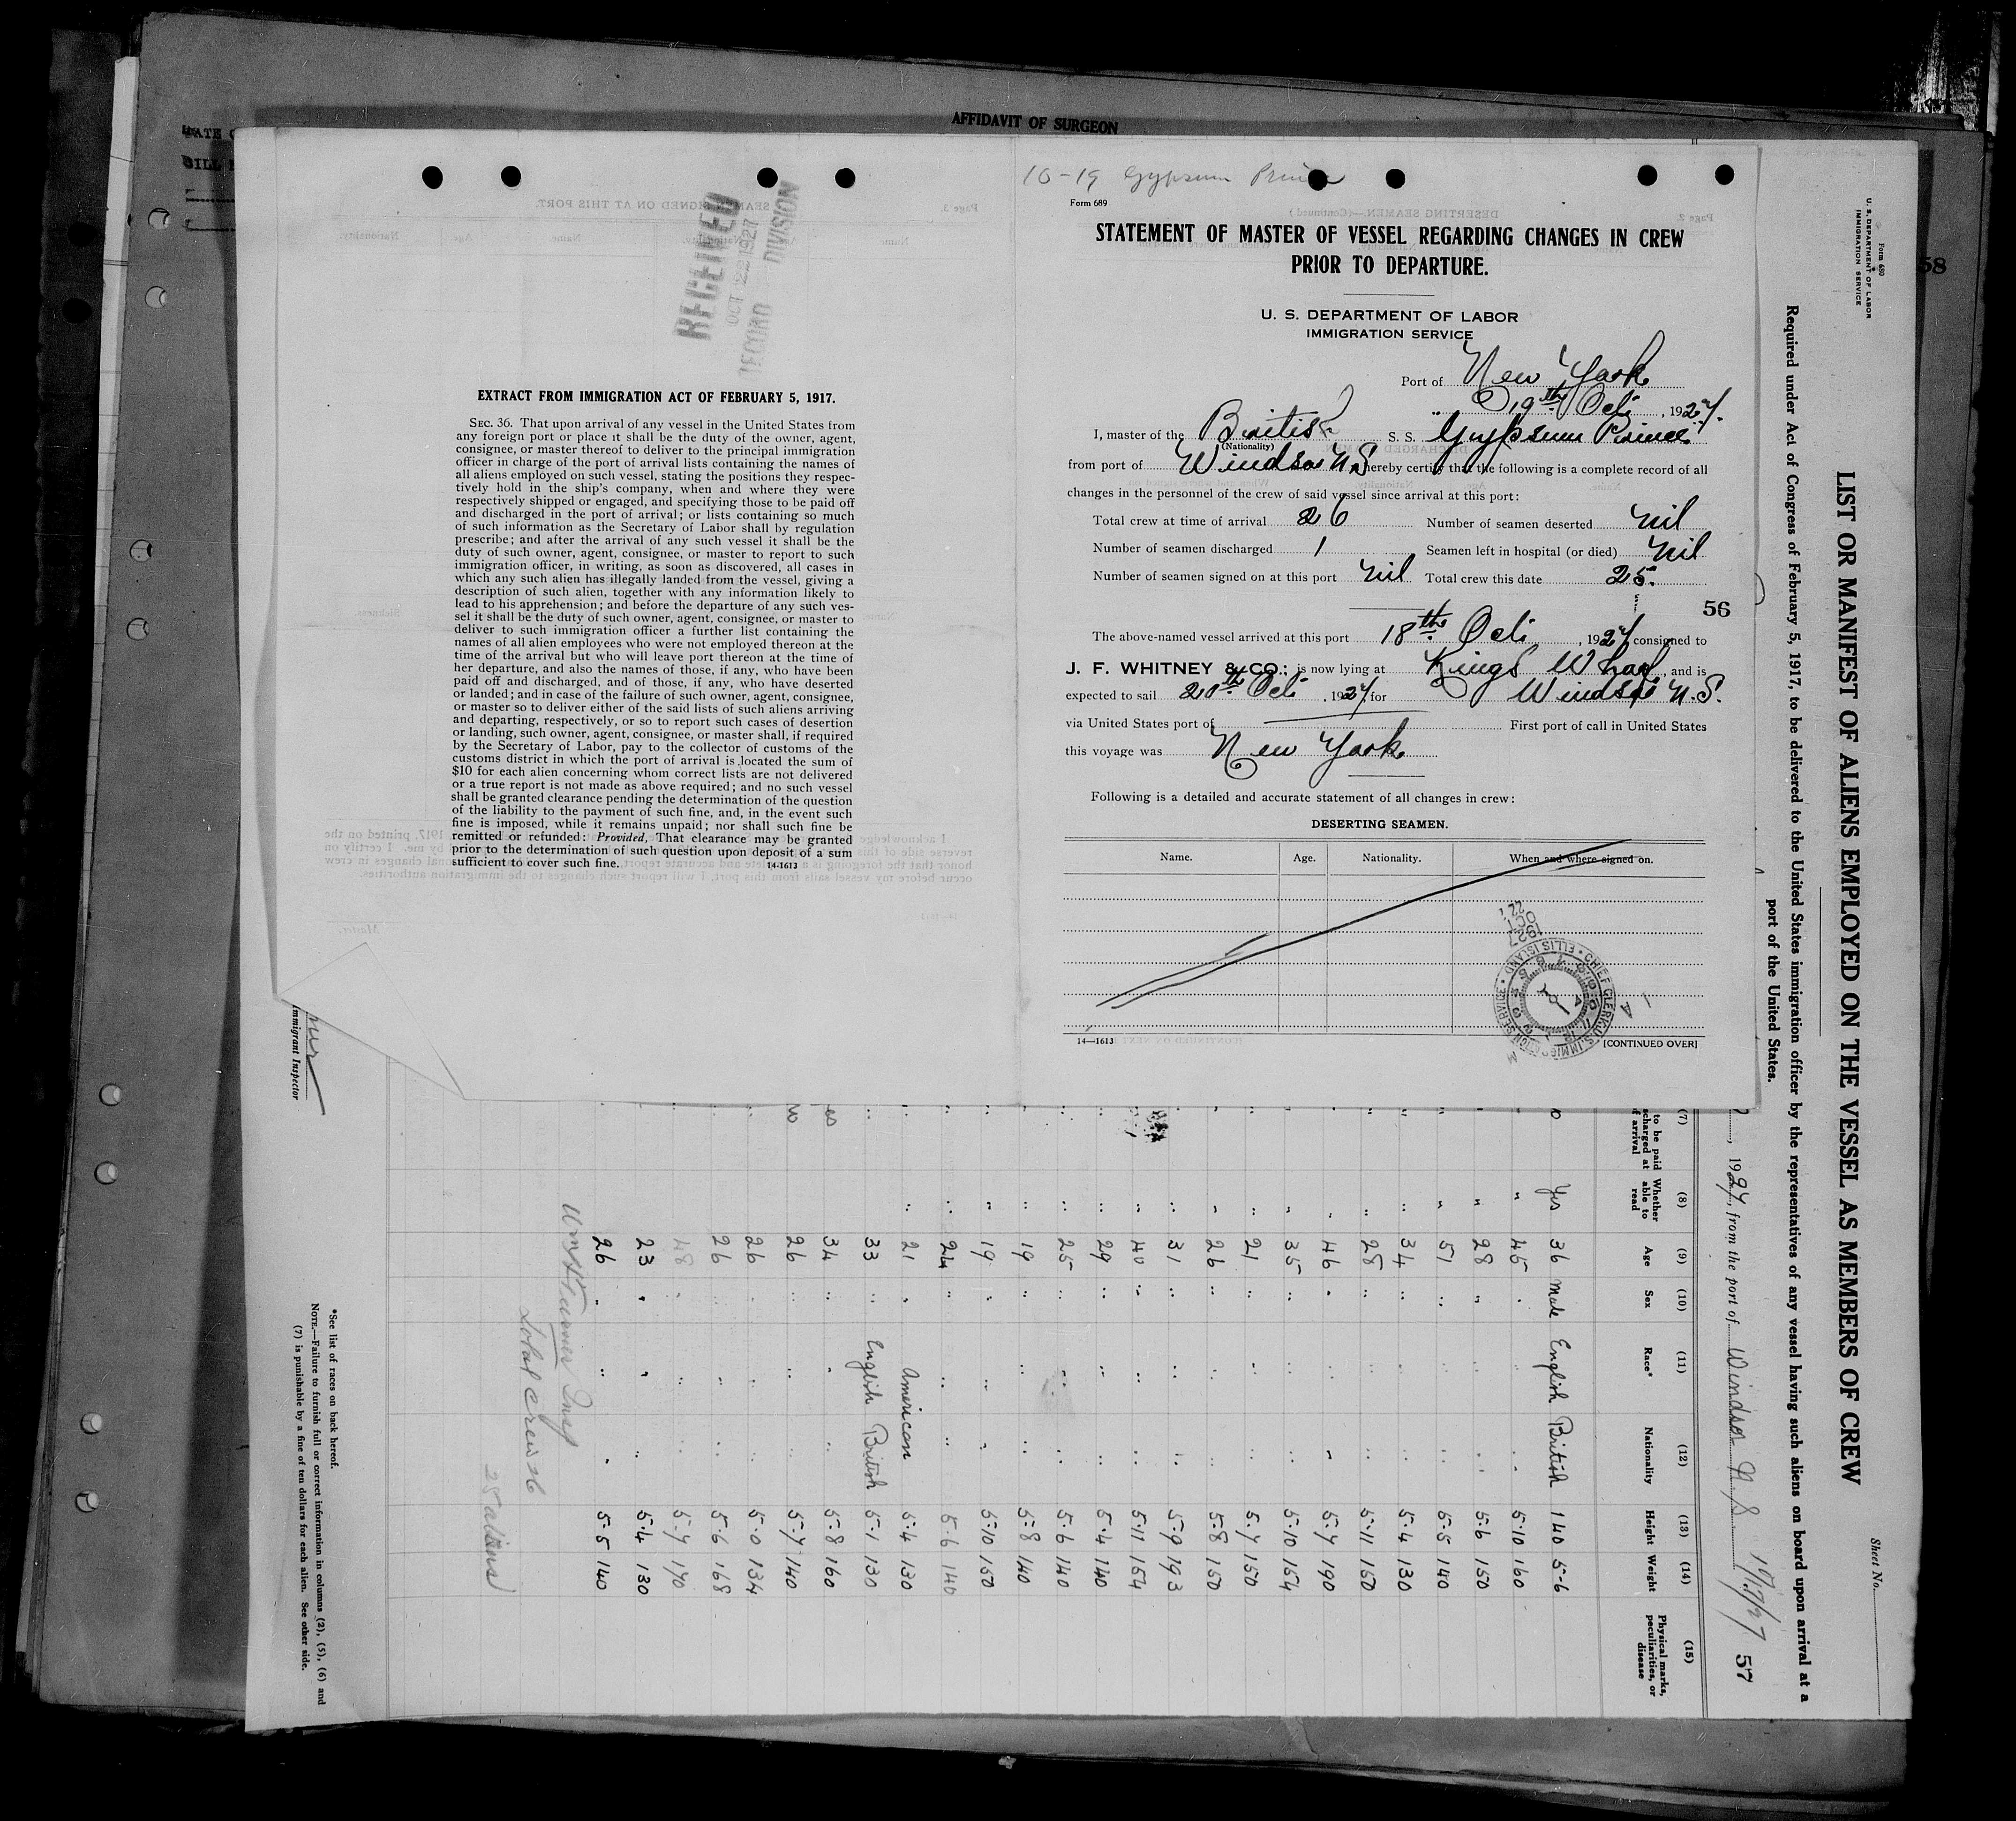 AFFIDAVIT OF SURGEON
10-19 Gypsum Prince
Form 689
STATEMENT OF MASTER OF VESSEL REGARDING CHANGES IN CREW
PRIOR TO DEPARTURE.
U. S. DEPARTMENT OF LABOR
IMMIGRATION SERVICE
Port of New York
19th Oct , 1927.
I, master of the British S. S. Gypsum Prince
(Nationality)
from port of Windsor N.S. hereby certify that the following is a complete record of all
changes in the personnel of the crew of said vessel since arrival at this port:
Total crew at time of arrival 26 Number of seamen deserted nil
Number of seamen discharged 1 Seamen left in hospital (or died) nil
Number of seamen signed on at this port nil Total crew this date 25.
56
The above-named vessel arrived at this port 18th Oct , 1927 consigned to
J. F. WHITNEY & CO.; is now lying at Kings Wharf, and is
expected to sail 20th Oct , 1927 for Windsor N.S.
via United States port of First port of call in United States
this voyage was New York
Following is a detailed and accurate statement of all changes in crew:
DESERTING SEAMEN.
Name. Age. Nationality. When and where signed on.
14—1613 [CONTINUED OVER]
RECEIVED
OCT 22 1927
RECORD DIVISION
EXTRACT FROM IMMIGRATION ACT OF FEBRUARY 5, 1917.
SEC. 36. That upon arrival of any vessel in the United States from
any foreign port or place it shall be the duty of the owner, agent,
consignee, or master thereof to deliver to the principal immigration
officer in charge of the port of arrival lists containing the names of
all aliens employed on such vessel, stating the positions they respec-
tively hold in the ship's company, when and where they were
respectively shipped or engaged, and specifying those to be paid off
and discharged in the port of arrival; or lists containing so much
of such information as the Secretary of Labor shall by regulation
prescribe; and after the arrival of any such vessel it shall be the
duty of such owner, agent, consignee, or master to report to such
immigration officer, in writing, as soon as discovered, all cases in
which any such alien has illegally landed from the vessel, giving a
description of such alien, together with any information likely to
lead to his apprehension; and before the departure of any such ves-
sel it shall be the duty of such owner, agent, consignee, or master to
deliver to such immigration officer a further list containing the
names of all alien employees who were not employed thereon at the
time of the arrival but who will leave port thereon at the time of
her departure, and also the names of those, if any, who have been
paid off and discharged, and of those, if any, who have deserted
or landed; and in case of the failure of such owner, agent, consignee,
or master so to deliver either of the said lists of such aliens arriving
and departing, respectively, or so to report such cases of desertion
or landing, such owner, agent, consignee, or master shall, if required
by the Secretary of Labor, pay to the collector of customs of the
customs district in which the port of arrival is located the sum of
$10 for each alien concerning whom correct lists are not delivered
or a true report is not made as above required; and no such vessel
shall be granted clearance pending the determination of the question
of the liability to the payment of such fine, and, in the event such
fine is imposed, while it remains unpaid; nor shall such fine be
remitted or refunded: Provided, That clearance may be granted
prior to the determination of such question upon deposit of a sum
sufficient to cover such fine. 14-1613
58
Form 680
U. S. DEPARTMENT OF LABOR
IMMIGRATION SERVICE
Sheet No.
LIST OR MANIFEST OF ALIENS EMPLOYED ON THE VESSEL AS MEMBERS OF CREW
Required under Act of Congress of February 5, 1917, to be delivered to the United States immigration officer by the representatives of any vessel having such aliens on board upon arrival at a
port of the United States.
, 1927, from the port of Windsor N. S. 10/17/27 57
(7) (8) (9) (10) (11) (12) (13) (14) (15)
to be paid Whether able to read Age Sex Race* Nationality Height Weight Physical marks, peculiarities, or disease
Yes 36 Male English British 140 5-6
" 45 " " " 5-10 160
" 28 " " " 5-6 150
" 51 " " " 5-5 140
" 34 " " " 5-4 130
" 28 " " " 5-11 150
" 46 " " " 5-7 190
" 35 " " " 5-10 154
" 21 " " " 5-7 150
" 26 " " " 5-8 150
" 31 " " " 5-9 193
" 40 " " " 5-11 154
" 29 " " " 5-4 140
" 25 " " " 5-6 140
" 19 " " " 5-8 140
" 19 " " " 5-10 150
" 24 " " " 5-6 140
" 21 " American 5-4 130
33 " English British 5-1 130
34 " " " 5-8 160
26 " " " 5-7 140
26 " " " 5-0 134
26 " " " 5-6 168
48 " " " 5-7 170
23 " " " 5-4 130
26 " " " 5-5 140
Total crew 26
25 aliens
Immigrant Inspector
*See list of races on back hereof.
NOTE.—Failure to furnish full or correct information in columns (2), (5), (6) and
(7) is punishable by a fine of ten dollars for each alien. See other side.